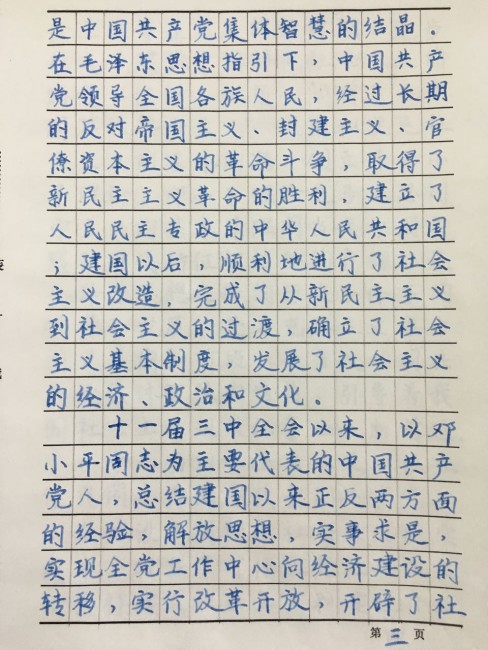 是中国共产党集体智慧的结晶。
在毛泽东思想指引下，中国共产
党领导全国各族人民，经过长期
的反对帝国主义、封建主义、官
僚资本主义的革命斗争，取得了
新民主主义革命的胜利，建立了
人民民主专政的中华人民共和国
；建国以后，顺利地进行了社会
主义改造，完成了从新民主主义
到社会主义的过渡，确立了社会
主义基本制度，发展了社会主义
的经济、政治和文化。
十一届三中全会以来，以邓
小平同志为主要代表的中国共产
党人，总结建国以来正反两方面
的经验，解放思想，实事求是，
实现全党工作中心向经济建设的
转移，实行改革开放，开辟了社
第三页